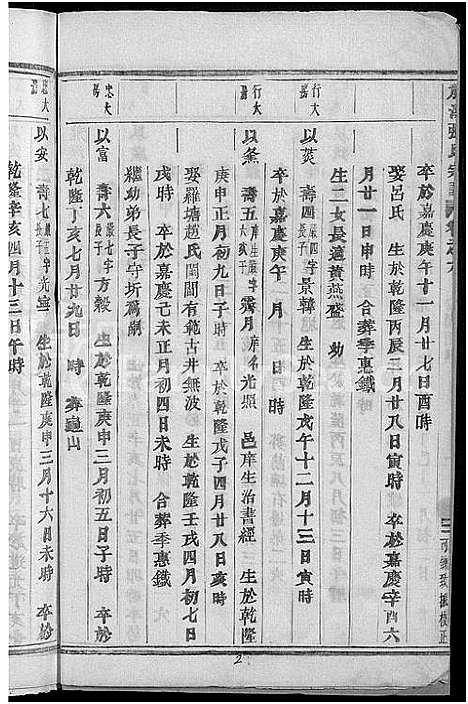 卒於嘉慶庚午十一月廿七日酉時
娶呂氏 生於乾隆丙辰三月廿八日寅時 卒於嘉慶辛酉六
月廿一日申時 合葬季惠鐵
生二女長適黃燕登 幼
行大
以荚 壽四 長子 字景韓 生於乾隆戊午十二月十三日寅時
卒於嘉慶庚午 月 日 時
行大
以 壽五 字霽月 庠名光照 邑庠生治書經 生於乾隆
庚申正月初九日子時 卒於乾隆戊子四月廿八日亥時
娶羅塘趙氏閨閫有範古井無波 生於乾隆壬戌四月初七日
戌時 卒於嘉慶己未正月初四日未時 合葬季惠鐵
繼幼弟長子守圻為嗣
忠大
以富 壽六 嚴七 長子 字方穀 生於乾隆庚申三月初五日子時 卒於
乾隆丁亥七月廿九日 時 葬龜山
忠大
以安 壽七 長子 字光寧 生於乾隆庚申三月十六日未時 卒於
乾隆辛亥四月十三日午時
2